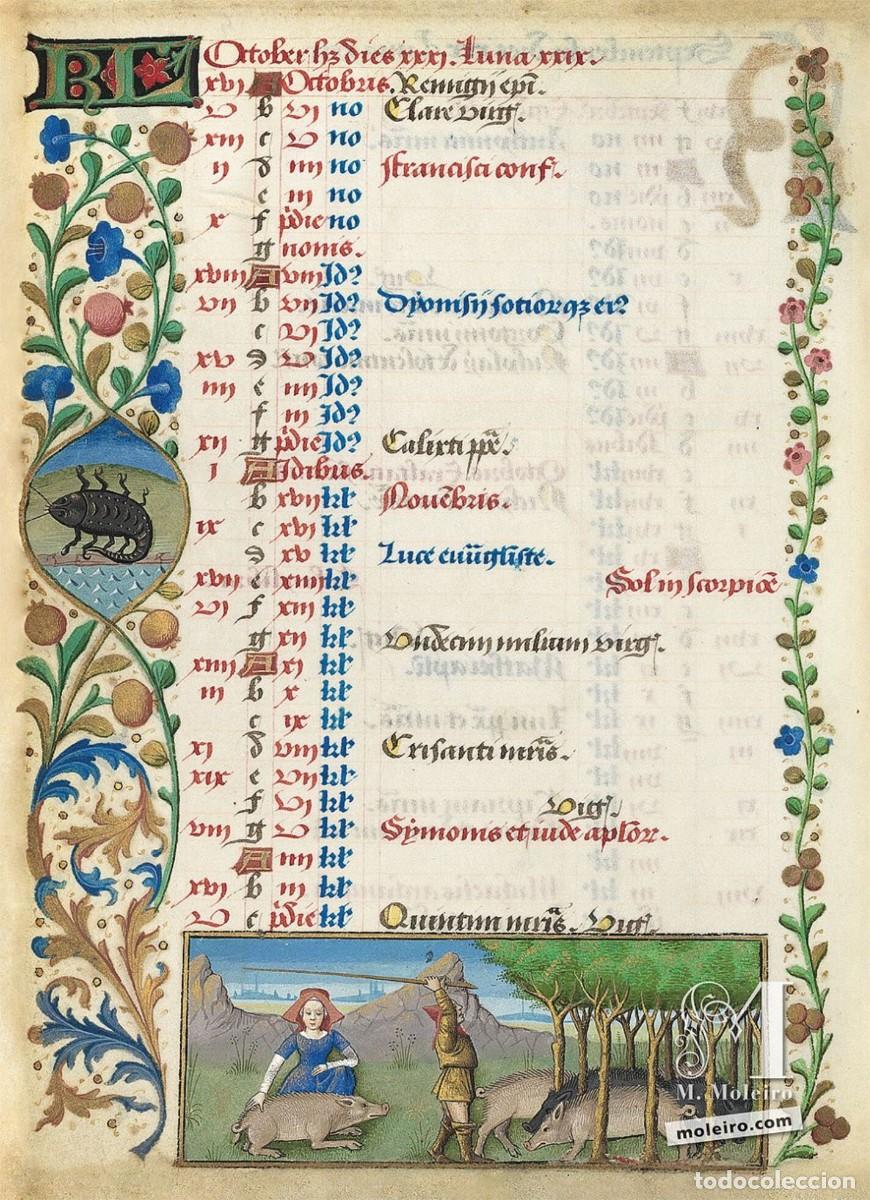 KL October hz dies xxxi. Luna xxix.
xvi A Octobris. Remigij epi.
v b vi no Clare virg.
xiii c v no
ii d iiii no Francisci conf.
e iii no
x f pdie no
g nonis.
xviii A viii Id?
vii b vii Id? Dyonisij sotiorqz ei?
c vi Id?
xv d v Id?
iiii e iiii Id?
f iii Id?
xii g pdie Id? Calixti ppe.
i A Idibus.
b xvii kl Novebris.
ix c xvi kl
d xv kl Luce evugliste.
xvii e xiiii kl Sol in scorpioe
vi f xiii kl
g xii kl Undecim milium virg.
xiiii A xi kl
iii b x kl
c ix kl
xi d viii kl Crisanti mris.
xix e vii kl
f vi kl Vig.
viii g v kl Symonis et iude aplorr.
A iiii kl
xvi b iii kl
v c pdie kl Quintini mris. Vig.
M
M. Moleiro
moleiro.com
todocoleccion